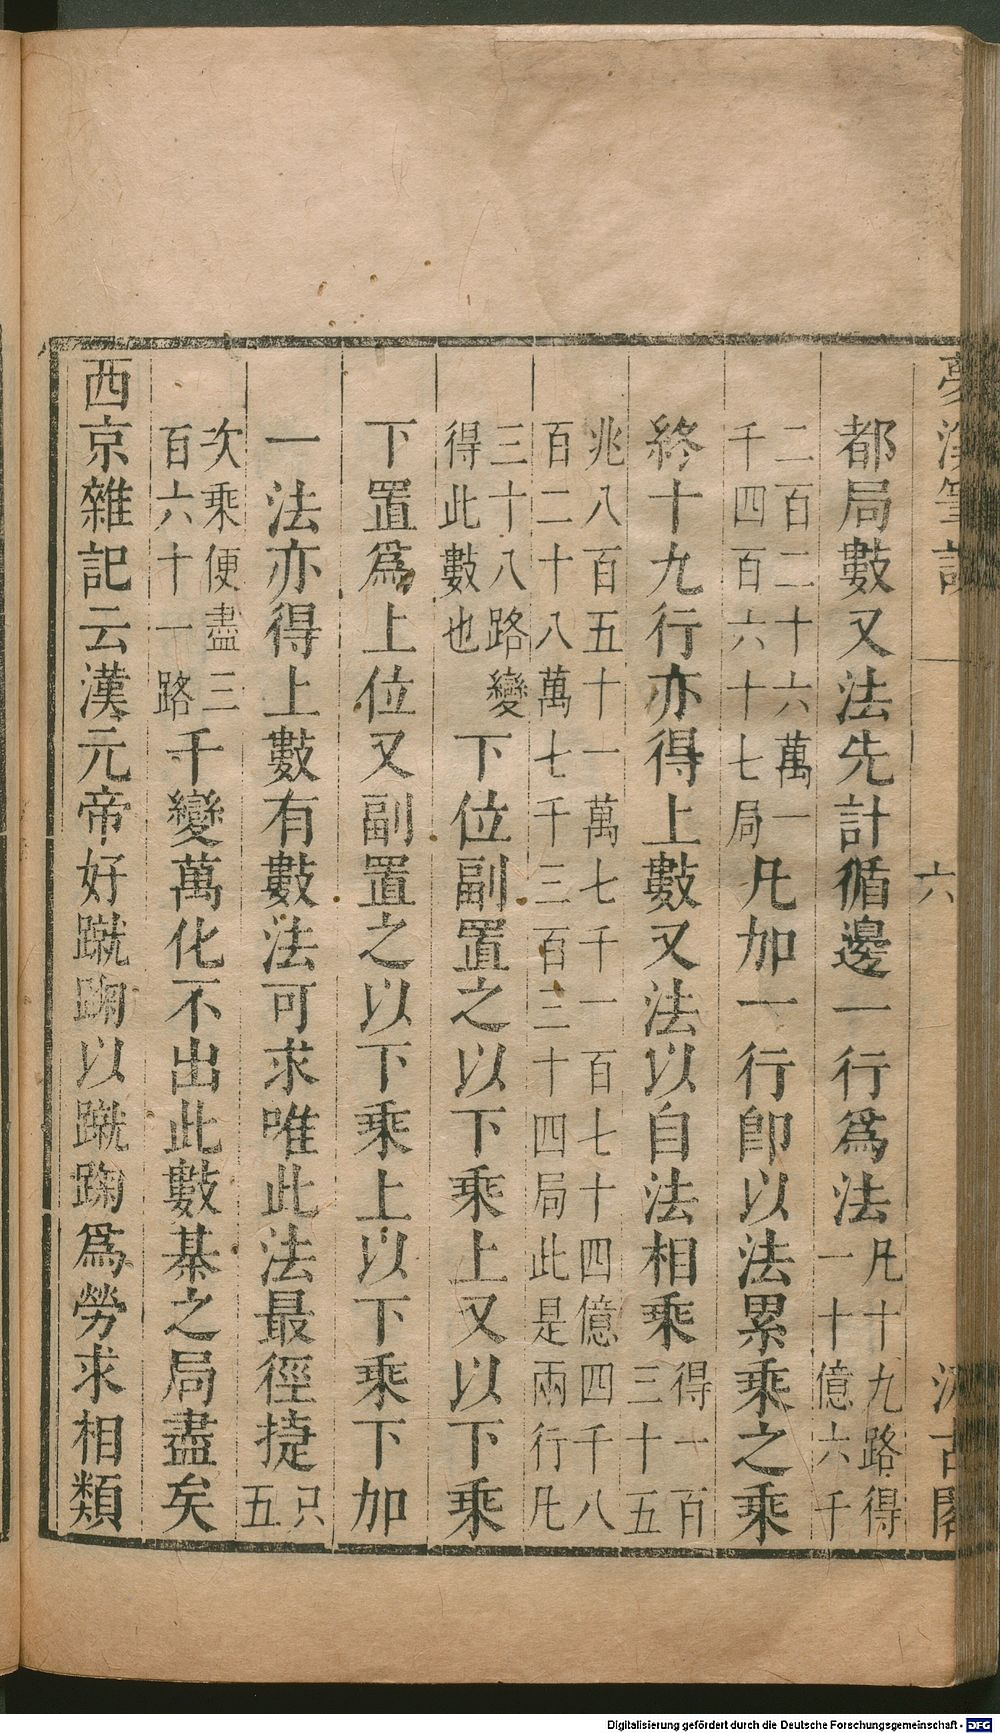 夢溪筆談 六 汲古閣
都局數又法先計循邊一行爲法凡十九路得一十億六千
二百二十六萬一千四百六十七局凡加一行卽以法累乘之乘
終十九行亦得上數又法以自法相乘得一百三十五
兆八百五十一萬七千一百七十四億四千八百二十八萬七千三百三十四局此是兩行凡
三十八路變得此數也下位副置之以下乘上又以下乘
下置爲上位又副置之以下乘上以下乘下加
一法亦得上數有數法可求唯此法最徑捷只五
次乘便盡三百六十一路千變萬化不出此數棊之局盡矣
西京雜記云漢元帝好蹴踘以蹴踘爲勞求相類
Digitalisierung gefördert durch die Deutsche Forschungsgemeinschaft - DFG